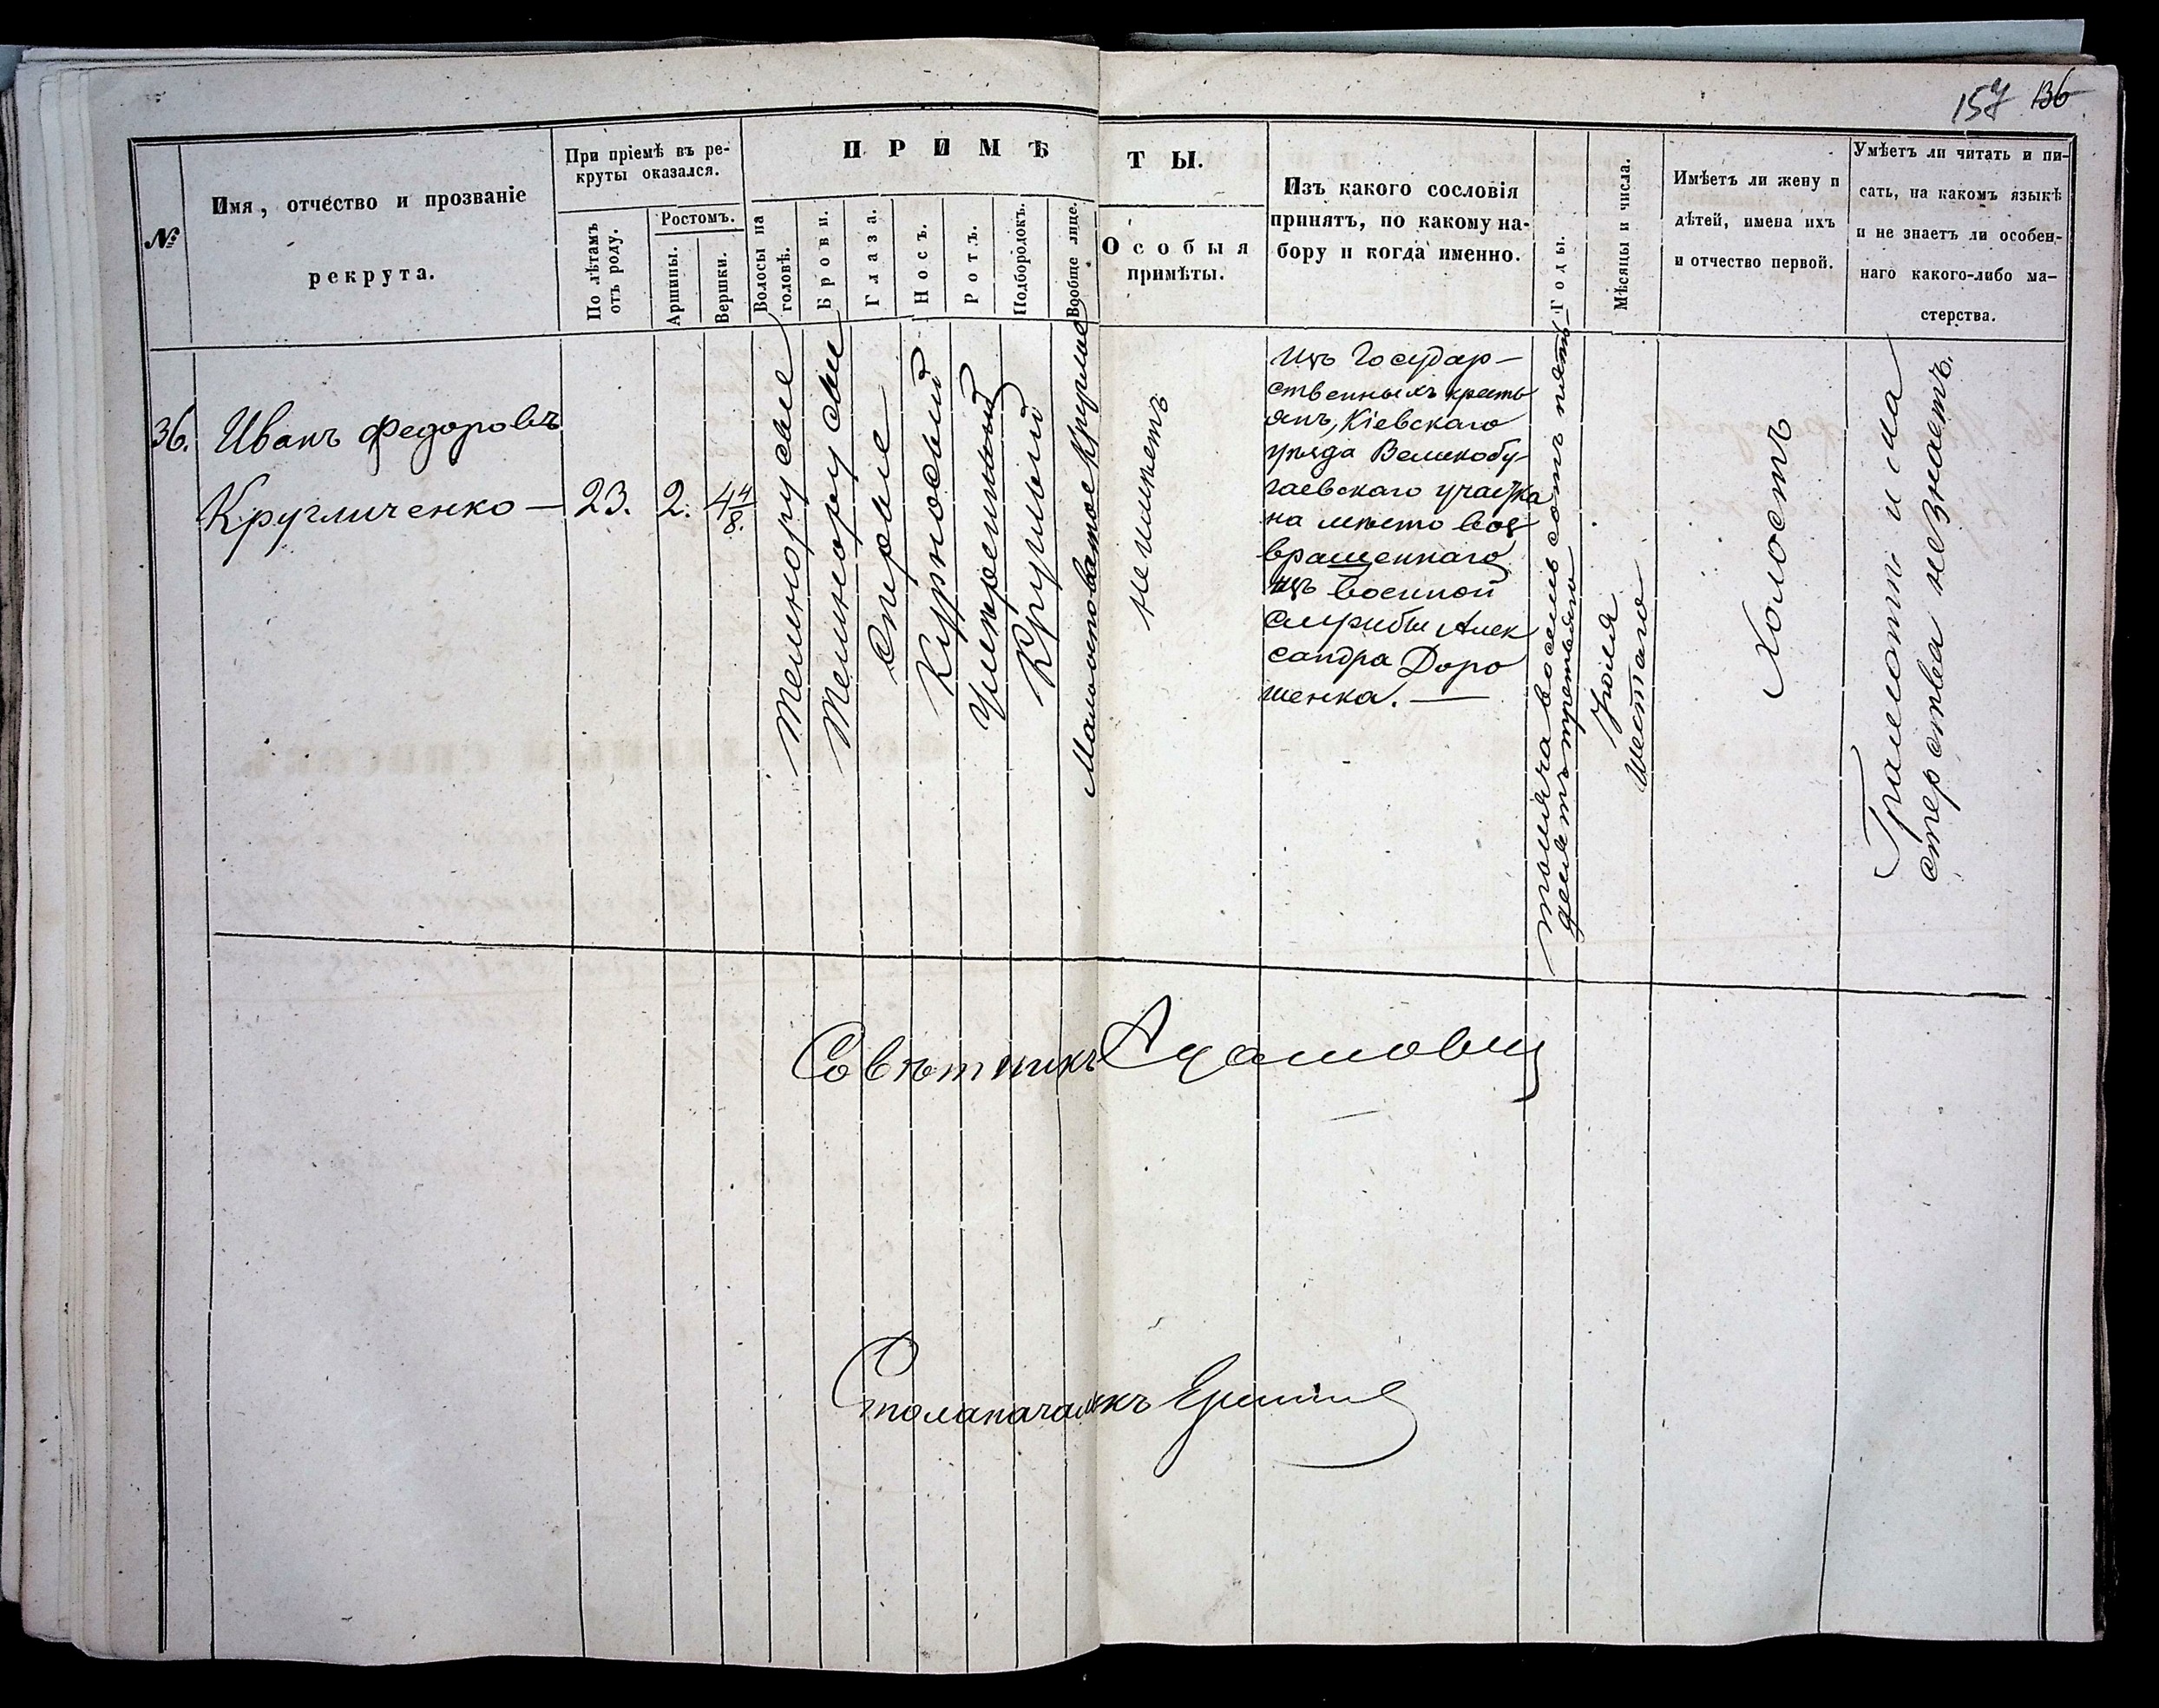 157 136
№
Имя, отчество и прозваніе
рекрута.
При пріемѣ въ ре-
круты оказался.
По лѣтамъ
отъ роду.
Ростомъ.
Аршины.
Вершки.
ПРИМѢТЫ.
Волосы на
головѣ.
Брови.
Глаза.
Носъ.
Ротъ.
Подбородокъ.
Вообще лице.
Особыя
примѣты.
Изъ какого сословія
принятъ, по какому на-
бору и когда именно.
Годы.
Мѣсяцы и числа.
Имѣетъ ли жену и
дѣтей, имена ихъ
и отчество первой.
Умѣетъ ли читать и пи-
сать, на какомъ языкѣ
и не знаетъ ли особен-
наго какого-либо ма-
стерства.
36.
Иванъ Федоровъ
Кругличенко —
23.
2.
4 4/8.
Темнорусые
Темнорусыи
Сѣрые
Курносый
Умѣренный
Круглый
Малоостоватое Круглое
неимѣетъ
Изъ Государ-
ственныхъ кресть
янъ, Кіевскаго
уѣзда Великобу-
гаевскаго участка
на мѣсто воз
вращеннаго
изъ военной
службы Алек
сандра Доро
шенка. —
тысяча восемь сотъ пять-
десятъ третьяго
Іюля
шестаго
Холостъ
Грамоты и ма
стерства незнаетъ.
Совѣтникъ
Столоначальникъ